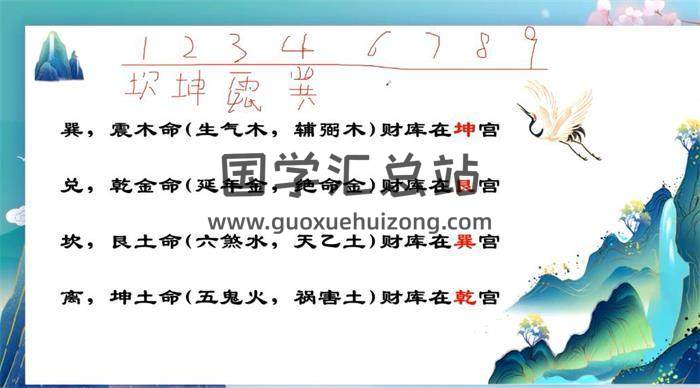 1 2 3 4 6 7 8 9
坎 坤 震 巽
巽，震木命(生气木，辅弼木)财库在坤宫
国学汇总站
兑，乾金命(延年金，绝命金)财库在艮宫
www.guoxuehuizong.com
坎，艮土命(六煞水，天乙土)财库在巽宫
离，坤土命(五鬼火，祸害土)财库在乾宫